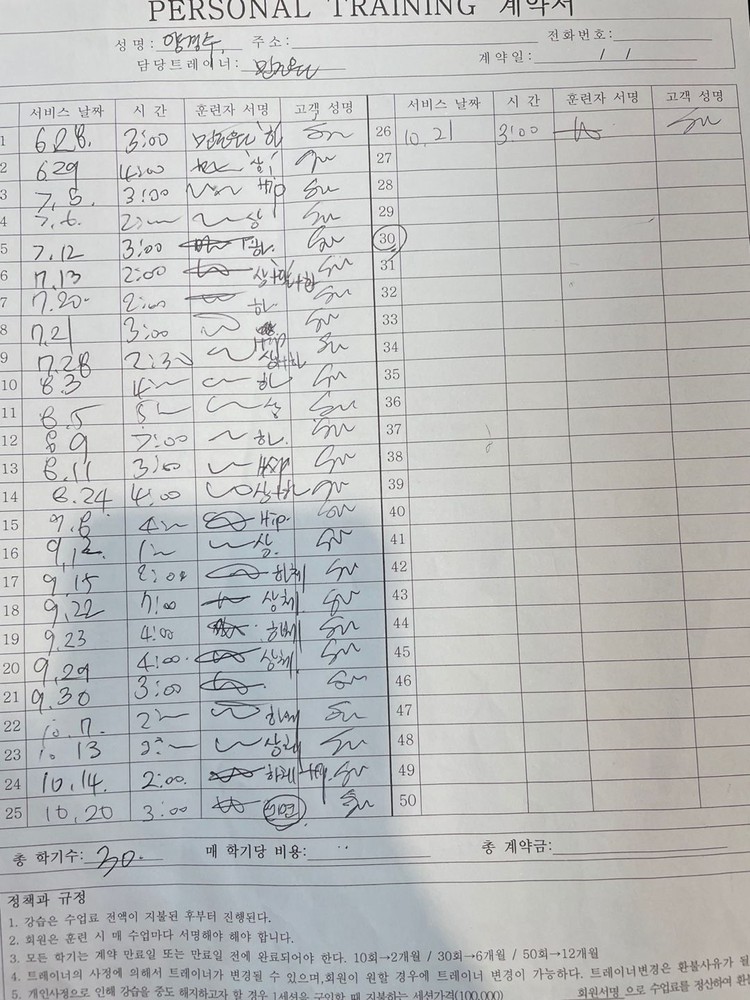 PERSONAL TRAINING 계약서
성명: 양경수 주소:
전화번호:
담당트레이너:
계약일: / /
서비스 날짜 시 간 훈련자 서명 고객 성명
서비스 날짜 시 간 훈련자 서명 고객 성명
1 6.28. 3:00 하
2 6.29 4:00 상
3 7.5. 3:00 Hip
4 7.6. 2: 상
5 7.12 3:00 하.
6 7.13 2:00
7 7.20. 2:00 하
8 7.21 3:00 Hip
9 7.28 2:30 상+하
10 8.3 4 하
11 8.5 5 상
12 8.9 7:00 하.
13 8.11 3:00 Hip
14 8.24 4:00 상+하
15 9.8 4 Hip.
16 9.12 1 상.
17 9.15 2:00 하체
18 9.22 7:00 상체
19 9.23 4:00 하체
20 9.29 4:00. 상체
21 9.30 3:00
22 10.7. 2 하체
23 10.13 2 상체
24 10.14. 2:00. 하체+Hip.
25 10.20 3:00
26 10.21 3:00
27
28
29
30
31
32
33
34
35
36
37
38
39
40
41
42
43
44
45
46
47
48
49
50
총 학기수: 30. 매 학기당 비용: 총 계약금:
정책과 규정
1. 강습은 수업료 전액이 지불된 후부터 진행된다.
2. 회원은 훈련 시 매 수업마다 서명해야 해야 합니다.
3. 모든 학기는 계약 만료일 또는 만료일 전에 완료되어야 한다. 10회→2개월 / 30회→6개월 / 50회→12개월
4. 트레이너의 사정에 의해서 트레이너가 변경될 수 있으며,회원이 원할 경우에 트레이너 변경이 가능하다. 트레이너변경은 환불사유가 될
5. 개인사정으로 인해 강습을 중도 해지하고자 할 경우 1세션을 구입할 때 지불하는 세션가격(100,000) 회원서명 으로 수업료를 정산하여 환